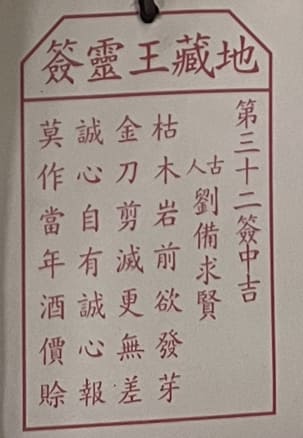 地藏王靈簽
第三十二簽中吉
古人劉備求賢
枯木岩前欲發芽
金刀剪滅更無差
誠心自有誠心報
莫作當年酒價賒